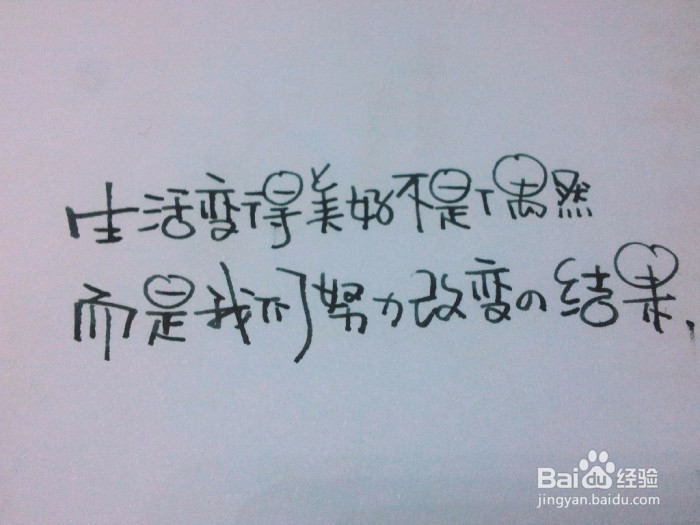 生活变得美好不是偶然
而是我们努力改变の结果.
Baidu经验
jingyan.baidu.com